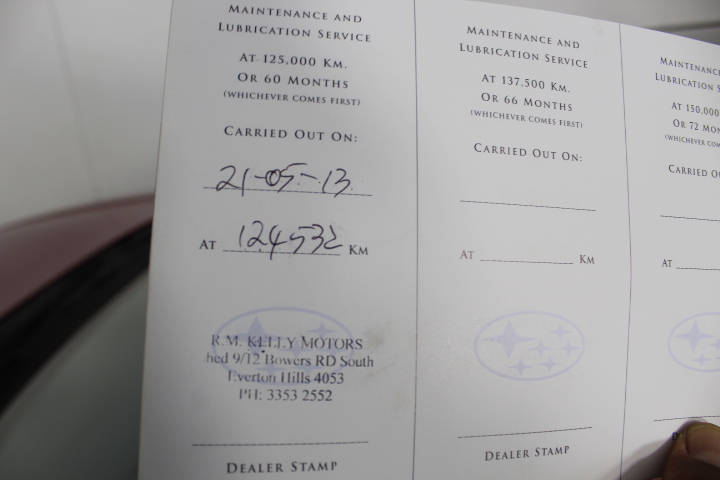 MAINTENANCE AND
LUBRICATION SERVICE
AT 125,000 KM.
OR 60 MONTHS
(WHICHEVER COMES FIRST)
CARRIED OUT ON:
21-05-13
AT 124532 KM
R.M. KELLY MOTORS
hed 9/12 Bowers RD South
Everton Hills 4053
PH: 3353 2552
DEALER STAMP
MAINTENANCE AND
LUBRICATION SERVICE
AT 137.500 KM.
OR 66 MONTHS
(WHICHEVER COMES FIRST)
CARRIED OUT ON:
AT KM
DEALER STAMP
MAINTENANCE
LUBRICATION S
AT 150,000
OR 72 MON
(WHICHEVER COM
CARRIED O
AT
D